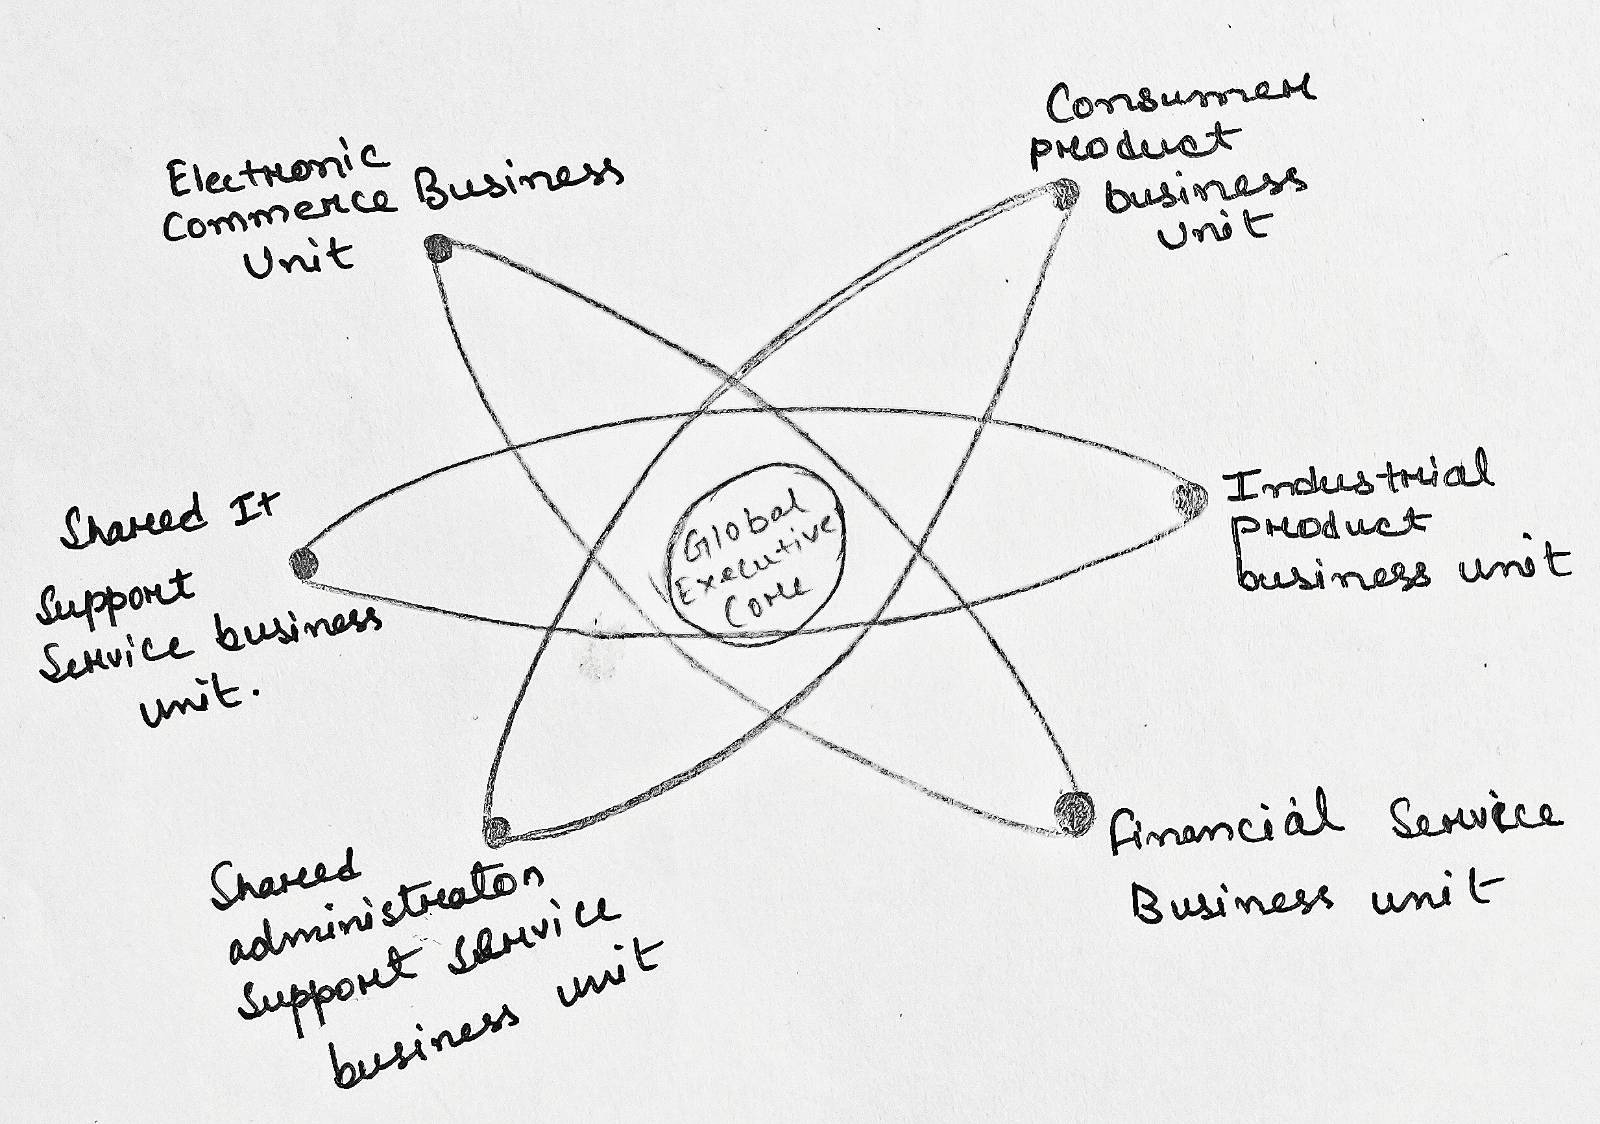 Electronic
Commerce Business
Unit
Consumer
product
business
Unit
Shared It
Support
Service business
unit.
Global
Executive
Core
Industrial
product
business unit
Shared
administraton
Support service
business unit
Financial Service
Business unit